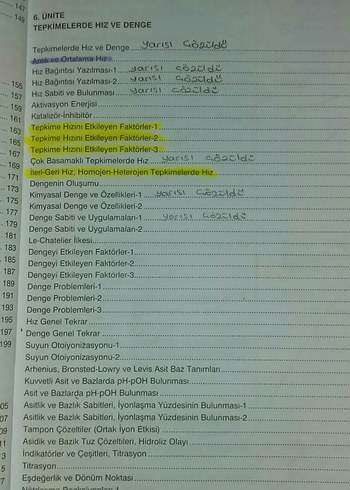 147
149
6. ÜNİTE
TEPKİMELERDE HIZ VE DENGE
Tepkimelerde Hız ve Denge ..... yarısı Çözüldü
Anlık ve Ortalama Hız
Hız Bağıntısı Yazılması-1 ..... yarısı çözüldü
Hız Bağıntısı Yazılması-2 ..... yarısı çözüldü
155 Hız Sabiti ve Bulunması ..... yarısı çözüldü
157 Aktivasyon Enerjisi
159 Katalizör-İnhibitör
161 Tepkime Hızını Etkileyen Faktörler-1
163 Tepkime Hızını Etkileyen Faktörler-2
165 Tepkime Hızını Etkileyen Faktörler-3
167 Çok Basamaklı Tepkimelerde Hız ..... yarısı çözüldü
169 İleri-Geri Hız, Homojen-Heterojen Tepkimelerde Hız
171 Dengenin Oluşumu
173 Kimyasal Denge ve Özellikleri-1 ..... yarısı çözüldü
175 Kimyasal Denge ve Özellikleri-2
177 Denge Sabiti ve Uygulamaları-1 ..... yarısı çözüldü
179 Denge Sabiti ve Uygulamaları-2
181 Le-Chatelier İlkesi
183 Dengeyi Etkileyen Faktörler-1
185 Dengeyi Etkileyen Faktörler-2
187 Dengeyi Etkileyen Faktörler-3
189 Denge Problemleri-1
191 Denge Problemleri-2
193 Denge Problemleri-3
195 Hız Genel Tekrar
197 Denge Genel Tekrar
199 Suyun Otoiyonizasyonu-1
Suyun Otoiyonizasyonu-2
Arhenius, Bronsted-Lowry ve Levis Asit Baz Tanımları
Kuvvetli Asit ve Bazlarda pH-pOH Bulunması
Asit ve Bazlarda pH-pOH Bulunması
05 Asitlik ve Bazlık Sabitleri, İyonlaşma Yüzdesinin Bulunması-1
07 Asitlik ve Bazlık Sabitleri, İyonlaşma Yüzdesinin Bulunması-2
09 Tampon Çözeltiler (Ortak İyon Etkisi)
11 Asidik ve Bazik Tuz Çözeltileri, Hidroliz Olayı
3 İndikatörler ve Çeşitleri, Titrasyon
5 Titrasyon
7 Eşdeğerlik ve Dönüm Noktası